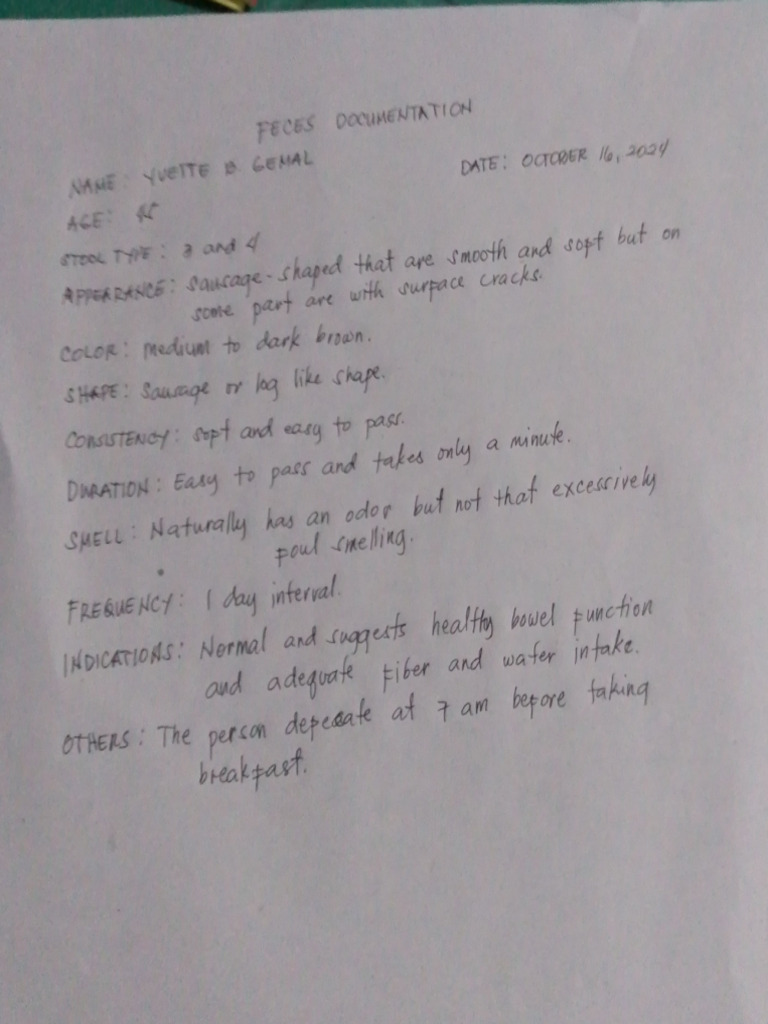 FECES DOCUMENTATION
NAME: YVETTE B. GEMAL
DATE: OCTOBER 16, 2024
AGE:
STOOL TYPE: 3 and 4
APPEARANCE: Sausage-shaped that are smooth and soft but on
some part are with surface cracks.
COLOR: medium to dark brown.
SHAPE: Sausage or log like shape.
CONSISTENCY: soft and easy to pass.
DURATION: Easy to pass and takes only a minute.
SMELL: Naturally has an odor but not that excessively
foul smelling.
FREQUENCY: 1 day interval.
INDICATIONS: Normal and suggests healthy bowel function
and adequate fiber and water intake.
OTHERS: The person defecate at 7 am before taking
breakfast.